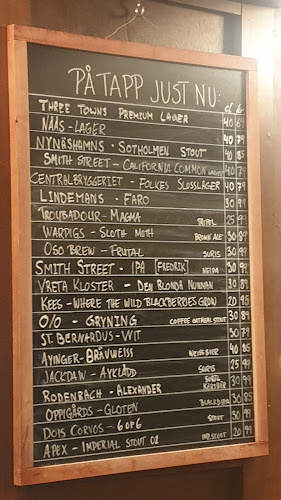 PÅ TAPP JUST NU:
cl kr
THREE TOWNS PREMIUM LAGER 40 69
NÄÄS - LAGER 40 79
NYNÄSHAMNS - SOTHOLMEN STOUT 40 85
SMITH STREET - CALIFORNIA COMMON LAGER 40 79
CENTRALBRYGGERIET - FOLKES SLOSSLAGER 40 79
LINDEMANS - FARO 30 99
TROUBADOUR - MAGMA TRIPEL 25 99
WARPIGS - SLOTH MOTH BROWN ALE 30 89
OSO BREW - FRUTAL SURIS 30 99
SMITH STREET - IPA [FREDRIK] NEIPA 30 99
VRETA KLOSTER - DEN BLONDA NUNNAN 30 79
KEES - WHERE THE WILD BLACKBERRIES GROW 20 95
O/O - GRYNING COFFEE OATMEAL STOUT 30 89
ST. BERNARDUS - WIT 30 79
AYINGER - BRÄUWEISS WEISSBIER 40 95
JACKDAW - AYKLÄDD SURIS 25 99
RODENBACH - ALEXANDER SURIS KÖRSBÄR 30 99
OPPIGÅRDS - GLÖTEN BLACK IPA 30 89
DOIS CORVOS - 6 OF 6 STOUT 30 99
APEX - IMPERIAL STOUT 02 IMP. STOUT 20 99